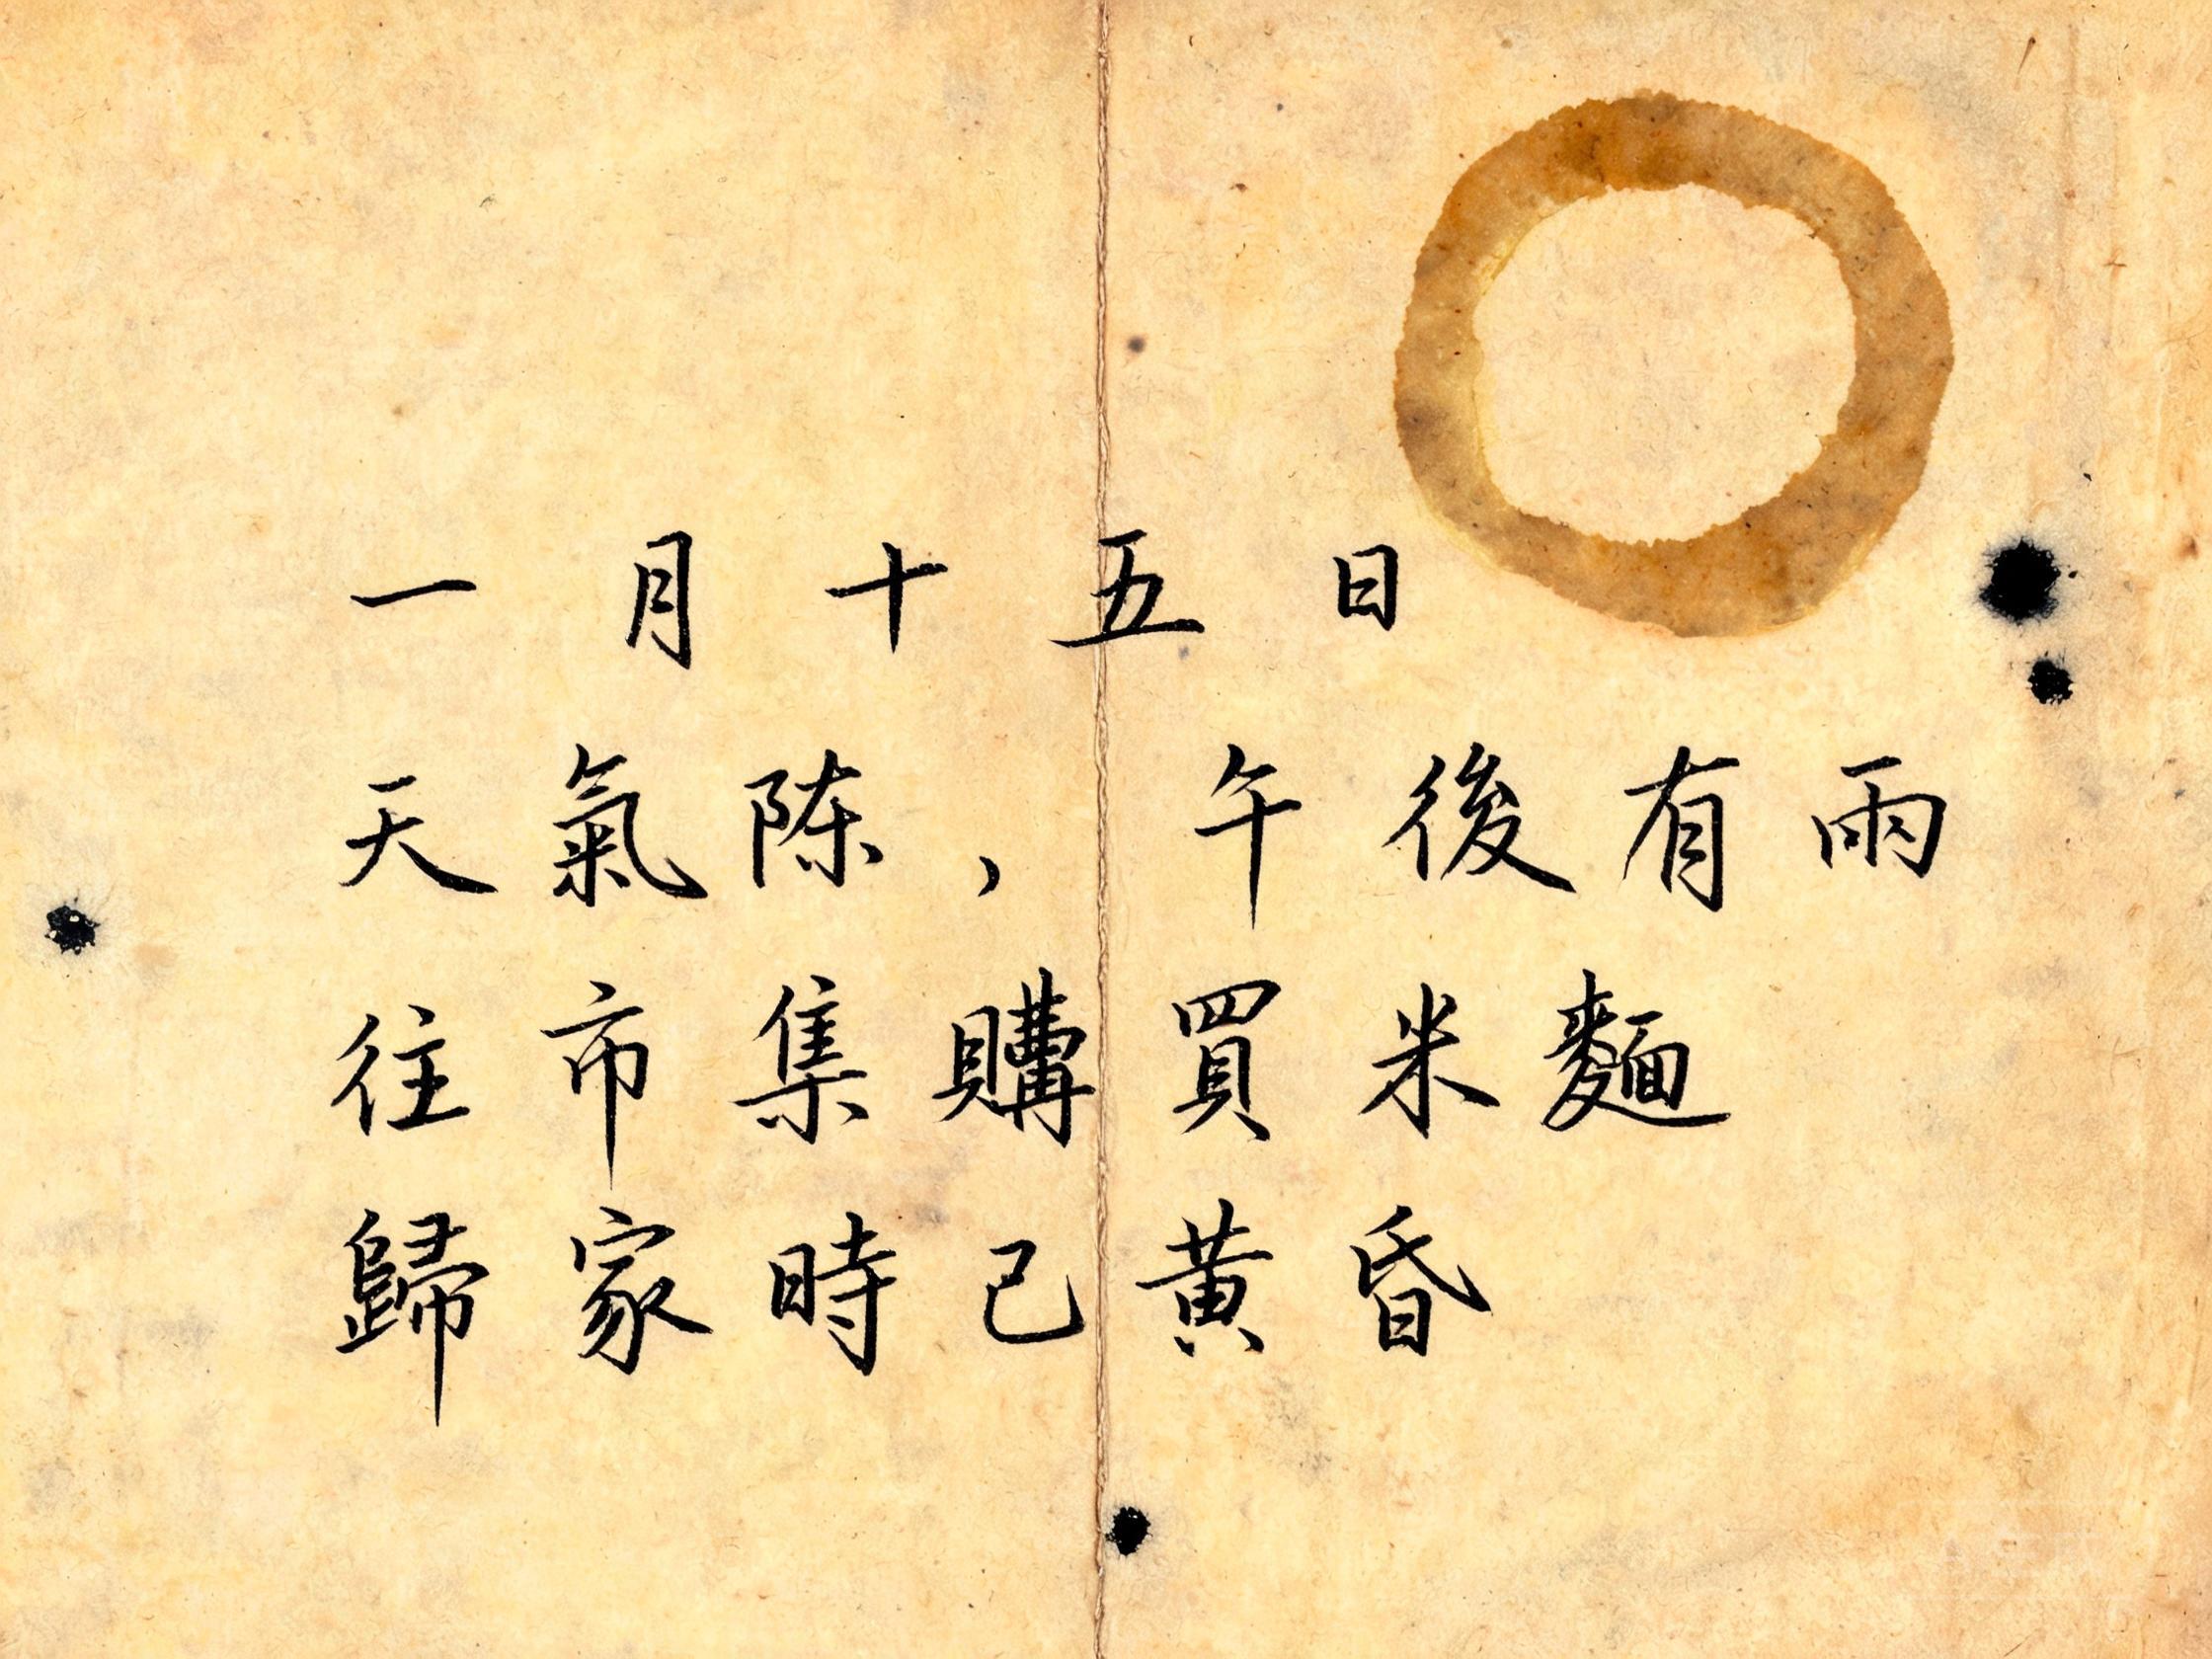 一月十五日
天氣陈，午後有雨
往市集購買米麵
歸家時己黄昏